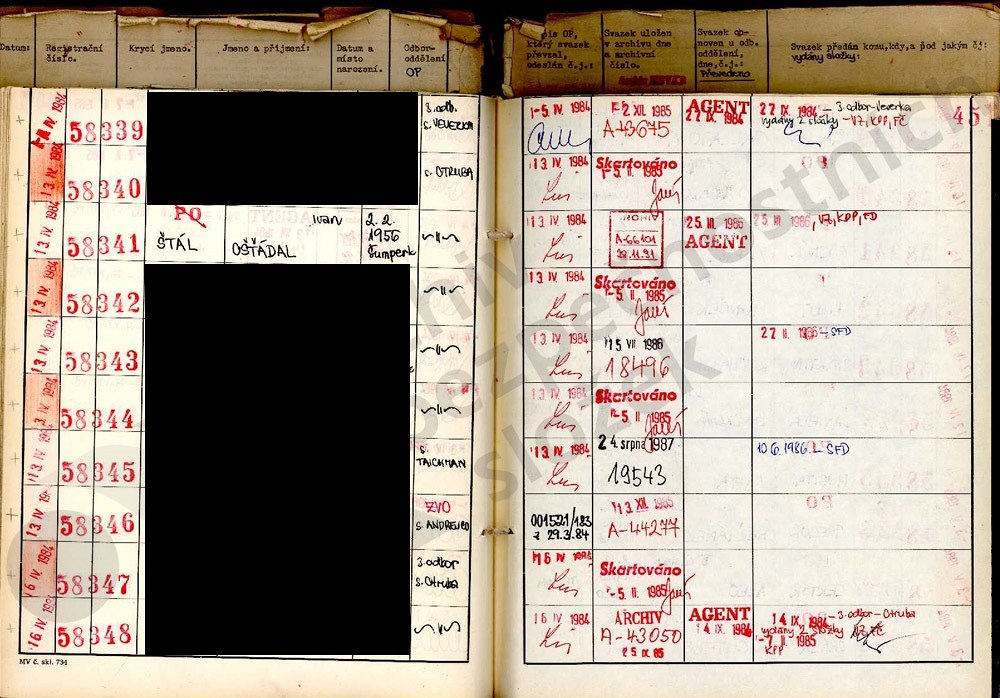 Datum: Registrační číslo. Krycí jmeno. Jmeno a přijmení: Datum a místo narození. Odbor-oddělení OP
který svazek převzal, odeslán č.j.: Svazek uložen v archivu dne a archivní číslo. Svazek obnoven u odb. oddělení, dne, č.j.: Převedeno Svazek předán komu, kdy, a pod jakým čj: vydány složky:
58339 3. odb. s. VEVERKA 1-5 IV. 1984 -2 XII 1985 A-43675 AGENT 27 IX. 1984 27 IX. 1984 - 3. odbor-Veverka vydány 2 složky - VZ, KPP, FČ 45
13 IV. 1984 58340 s. OTRUBA 13 IV. 1984 Skartováno -5. II. 1985
13 IV. 1984 58341 PO ŠTÁL Ivan OŠŤÁDAL 2. 2. 1956 Šumperk -"- 13 IV. 1984 A-66101 25 III. 1986 AGENT 25 III. 1986, VZ, KPP, FD
13 IV. 1984 58342 -"- 13 IV. 1984 Skartováno -5. II. 1985
13 IV. 1984 58343 -"- 13 IV. 1984 15 VII 1986 18496 27 II. 1986 - SFD
13 IV. 1984 58344 -"- 13 IV. 1984 Skartováno -5. II. 1985
13 IV. 1984 58345 s. TAICHMAN 13 IV. 1984 24. srpna 1987 19543 10. 6. 1986 - SFD
13 IV. 1984 58346 ZVO 001521/183 z 29.3.84 13 XII. 1985 A-44277
16 IV. 1984 58347 3. odbor s. Otruba 16 IV. 1984 Skartováno -5. II. 1985
16 IV. 1984 58348 -"- 16 IV. 1984 ARCHIV A-43050 25 IX 85 AGENT 14 IX. 1984 14 IX. 1984 - 3. odbor - Otruba vydány 2 složky -7. II. 1985 KPP
MV č. skl. 734